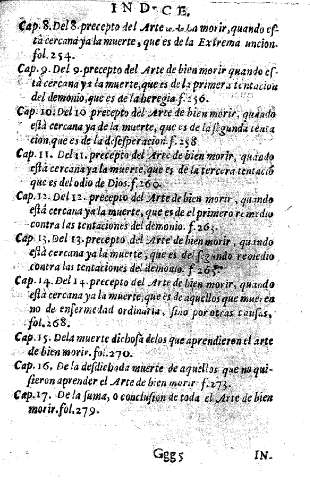 INDICE.
Cap. 8. Del 8. precepto del Arte de la morir, quando es-
tà cercana ya la muerte, que es de la Extrema uncion.
fol. 254.
Cap. 9. Del 9. precepto del Arte de bien morir quando es-
tà cercana ya la muerte, que es de la primera tentacion
del demonio, que es de la heregia f. 256.
Cap. 10. Del 10 precepto del Arte de bien morir, quando
està cercana ya de la muerte, que es de la segunda tenta
cion, que es de la desesperacion f. 258
Cap. 11. Del 11. precepto del Arte de bien morir, quando
està cercana ya la muerte, que es de la tercera tentació
que es del odio de Dios. f. 260.
Cap. 12. Del 12. precepto del Arte de bien morir, quando
està cercana ya la muerte, que es de el primero remedio
contra las tentaciones del demonio. f. 263.
Cap. 13. Del 13. precepto del Arte de bien morir, quando
està cercana ya la muerte, que es del segundo remedio
contra las tentaciones del demonio. f. 265.
Cap. 14. Del 14. precepto del Arte de bien morir, quando
està cercana ya la muerte, que es de aquellos que mueren
no de enfermedad ordinaria, sino por otras causas,
fol. 268.
Cap. 15. De la muerte dichosa de los que aprendieron el arte
de bien morir. fol. 270.
Cap. 16. De la desdichada muerte de aquellos que no qui-
sieron aprender el Arte de bien morir f. 273.
Cap. 17. De la suma, o conclusion de toda el Arte de bien
morir. fol. 279.
Ggg5 IN-